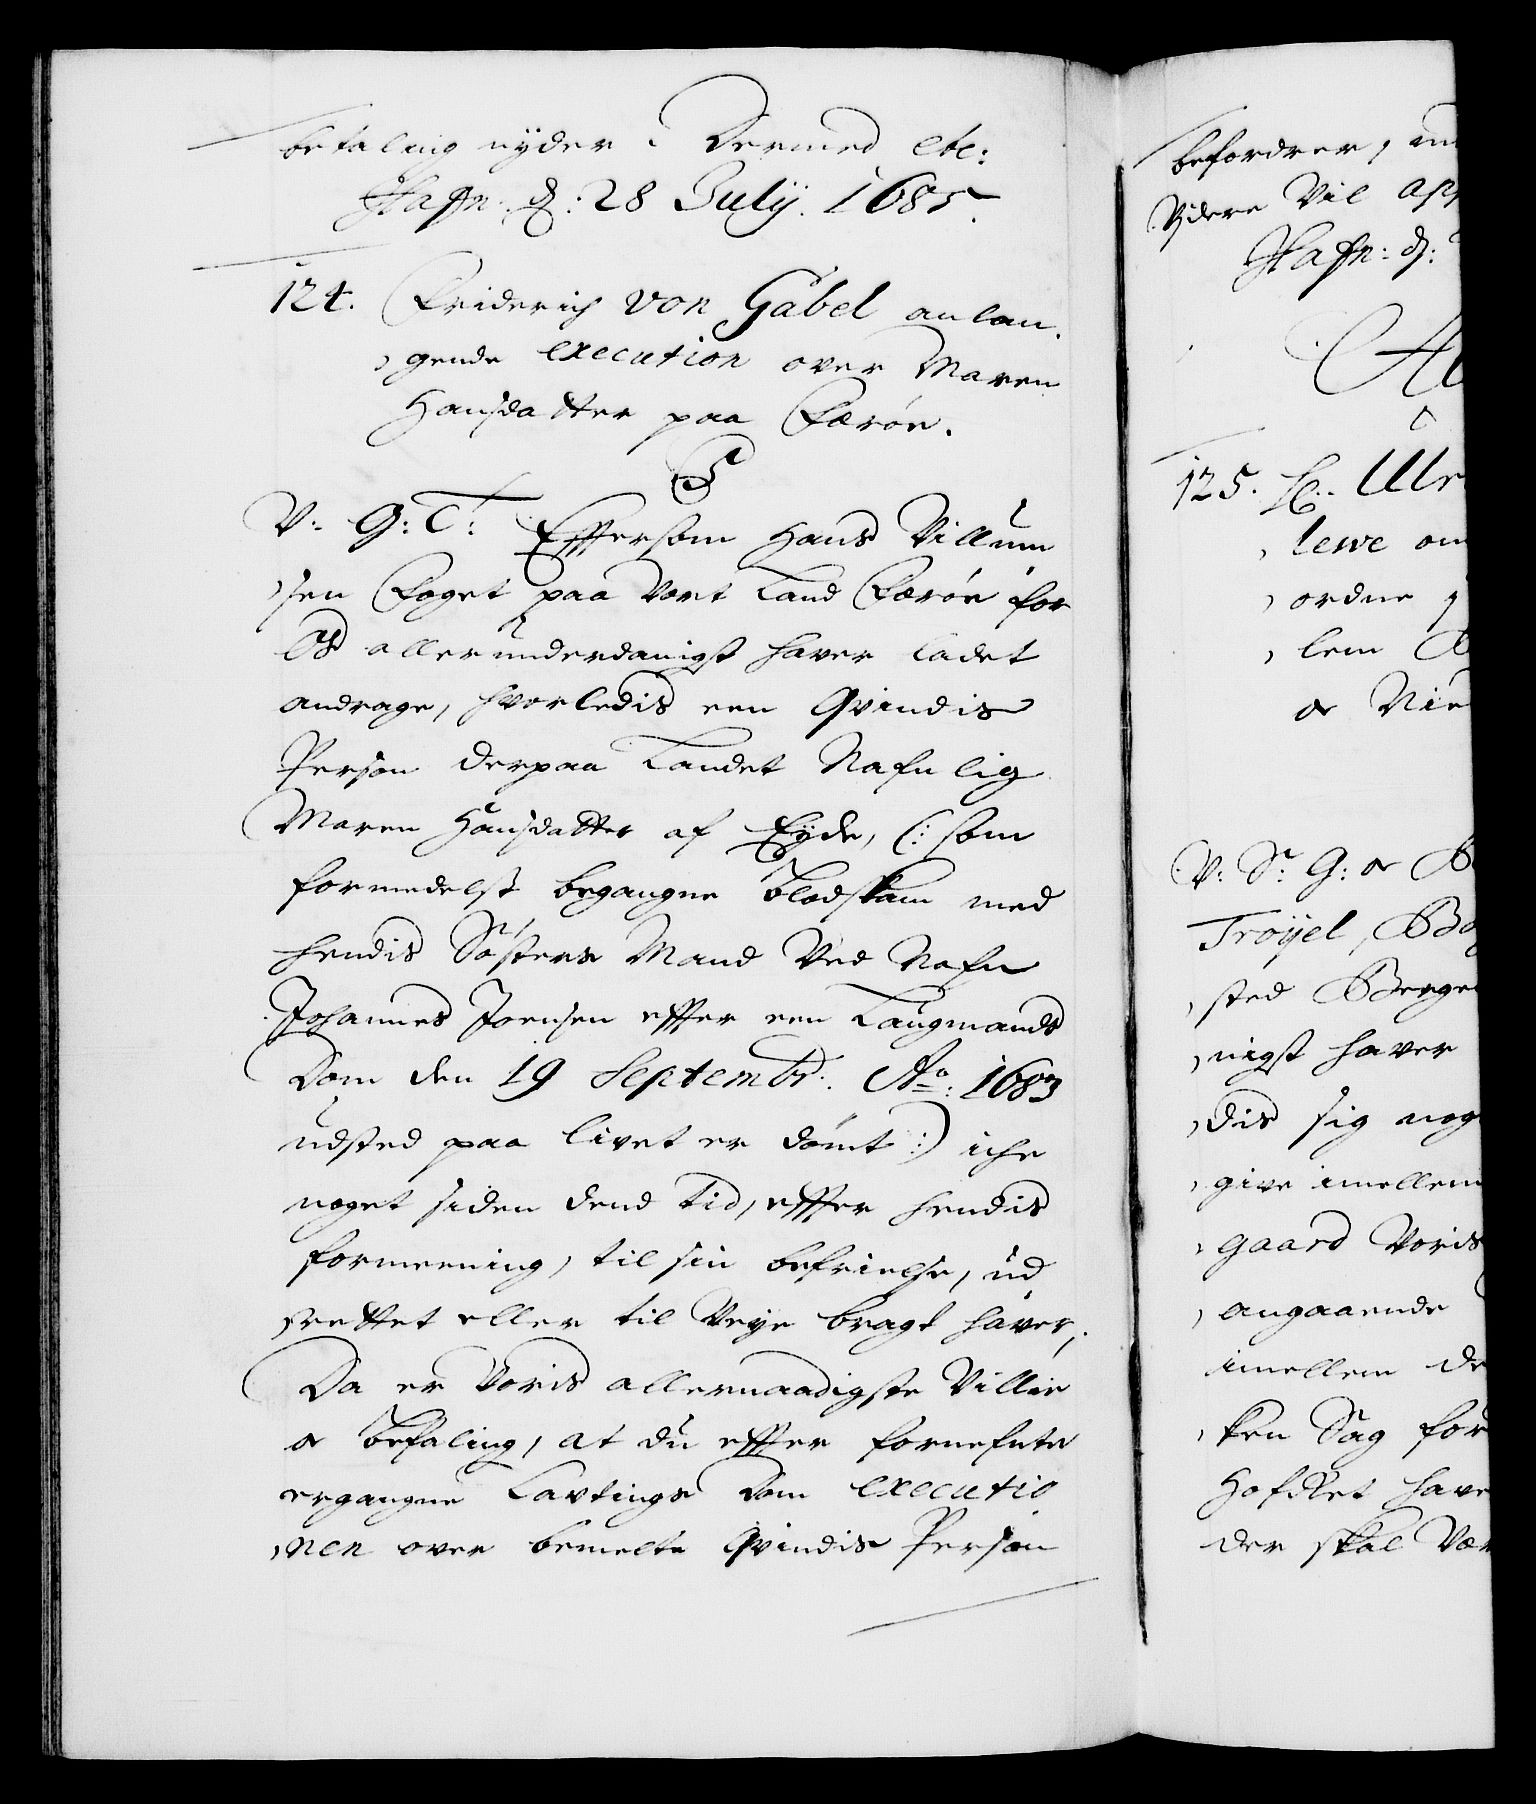 betaling nyder. Dermed etc:
Hafn. d: 28 Julij. 1685.
124. Friderich von Gabel anlan
gende execution over Maren
Hansdatter paa Færöe.
V: G: T: Effersom Hans Villum
sen Foget paa Vort Land Færöe for
Os allerunderdanigst haver ladet
andrage, hvorledis een Qvindis
Person derpaa Landet Nafnlig
Maren Hansdatter af Eyde, (: som
formedelst begangne blodskam med
hendis Søsters Mand Ved Nafn
Johannes Joensen effter een Laugmands
Dom den 19 Septembr: Ao: 1683
udsted paa livet er dömt :) iche
noget siden dend tid, effter hendis
formeening, til sin befrielse, ud
rettet eller til Veye bragt haver;
Da er Voris allernaadigste Villie
oc befaling, at du effter fornefnte
ergangne Lavtings Dom executio
nen over bemelte Qvindis Person
befordrer,
Videre Vil
Hafn: d:
125. H.
lewe om
ordne
lem
oc
V: Sr: G: oc
Troyel,
sted Berge
nigst haver
dis sig nog
give imellem
gaard Voris
angaaende
imellem de
ken Sag for
Hofret have
der skal